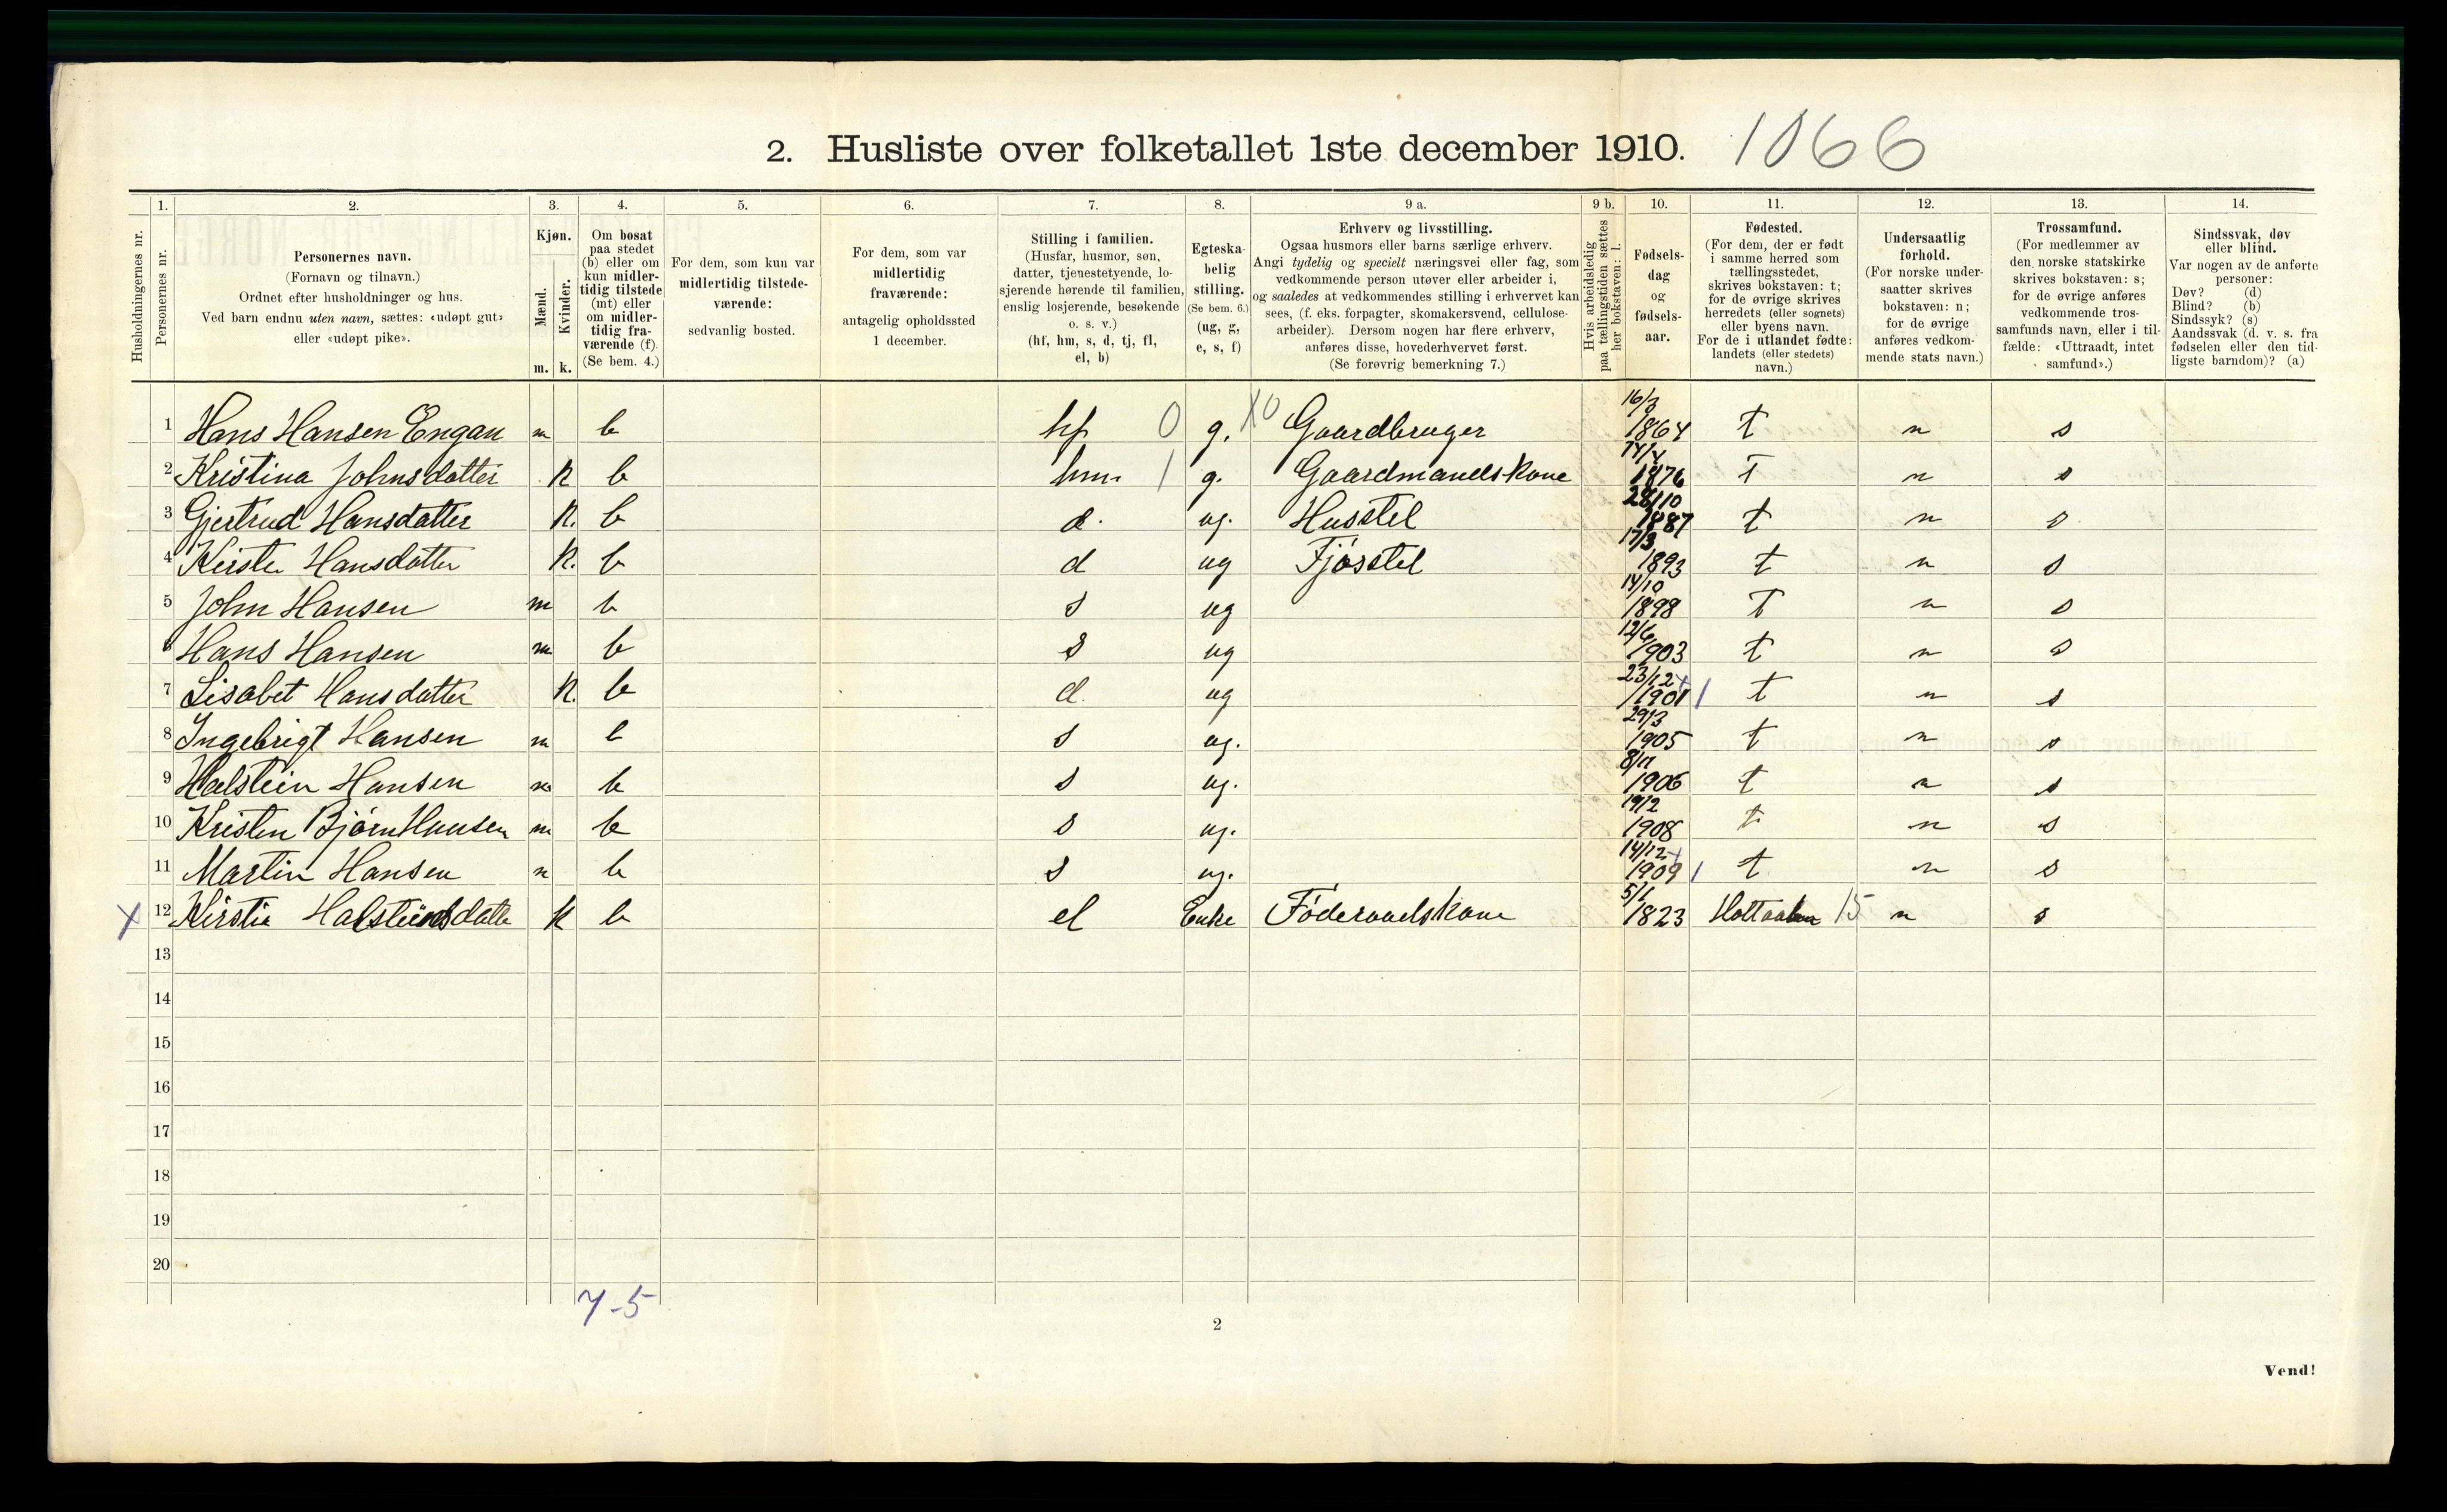 2. Husliste over folketallet 1ste december 1910. 1066
1. 2. 3. 4. 5. 6. 7. 8. 9 a. 9 b. 10. 11. 12. 13. 14.
Husholdningernes nr.
Personernes nr.
Personernes navn.
(Fornavn og tilnavn.)
Ordnet efter husholdninger og hus.
Ved barn endnu uten navn, sættes: «udøpt gut»
eller «udøpt pike».
Kjøn.
Mænd.
Kvinder.
m. k.
Om bosat
paa stedet
(b) eller om
kun midler-
tidig tilstede
(mt) eller
om midler-
tidig fra-
værende (f).
(Se bem. 4.)
For dem, som kun var
midlertidig tilstede-
værende:
sedvanlig bosted.
For dem, som var
midlertidig
fraværende:
antagelig opholdssted
1 december.
Stilling i familien.
(Husfar, husmor, søn,
datter, tjenestetyende, lo-
sjerende hørende til familien,
enslig losjerende, besøkende
o. s. v.)
(hf, hm, s, d, tj, fl,
el, b)
Egteska-
belig
stilling.
(Se bem. 6.)
(ug, g,
e, s, f)
Erhverv og livsstilling.
Ogsaa husmors eller barns særlige erhverv.
Angi tydelig og specielt næringsvei eller fag, som
vedkommende person utøver eller arbeider i,
og saaledes at vedkommendes stilling i erhvervet kan
sees, (f. eks. forpagter, skomakersvend, cellulose-
arbeider). Dersom nogen har flere erhverv,
anføres disse, hovederhvervet først.
(Se forøvrig bemerkning 7.)
Hvis arbeidsledig
paa tællingstiden sættes
her bokstaven: l.
Fødsels-
dag
og
fødsels-
aar.
Fødested.
(For dem, der er født
i samme herred som
tællingsstedet,
skrives bokstaven: t;
for de øvrige skrives
herredets (eller sognets)
eller byens navn.
For de i utlandet fødte:
landets (eller stedets)
navn.)
Undersaatlig
forhold.
(For norske under-
saatter skrives
bokstaven: n;
for de øvrige
anføres vedkom-
mende stats navn.)
Trossamfund.
(For medlemmer av
den norske statskirke
skrives bokstaven: s;
for de øvrige anføres
vedkommende tros-
samfunds navn, eller i til-
fælde: «Uttraadt, intet
samfund».)
Sindssvak, døv
eller blind.
Var nogen av de anførte
personer:
Døv? (d)
Blind? (b)
Sindssyk? (s)
Aandssvak (d. v. s. fra
fødselen eller den tid-
ligste barndom)? (a)
1 Hans Hansen Engan m b hf 0 g. X0 Gaardbruger 16/3 1864 t n s
2 Kristina Johnsdatter k b hm 1 g. Gaardmandskone 14/4 1876 t n s
3 Gjertrud Hansdatter k. b d. ug. Husstel 28/10 1887 t n s
4 Kirstie Hansdatter k. b d ug Fjøsstel 17/3 1893 t n s
5 John Hansen m b s ug 14/10 1898 t n s
6 Hans Hansen m b s ug 12/6 1903 t n s
7 Lisabet Hansdatter k. b d. ug 23/12 1901 t n s
8 Ingebrigt Hansen m b s ug. 29/3 1905 t n s
9 Halstein Hansen m b s ug. 8/11 1906 t n s
10 Kristen Bjørn Hansen m b s ug. 19/2 1908 t n s
11 Martin Hansen m b s ug. 14/12 1909 t n s
X 12 Kirstie Halsteinsdatte k b el Enke Føderaadskone 5/1 1823 Holtaalen 15 n s
13
14
15
16
17
18
19
20
7-5
2
Vend!